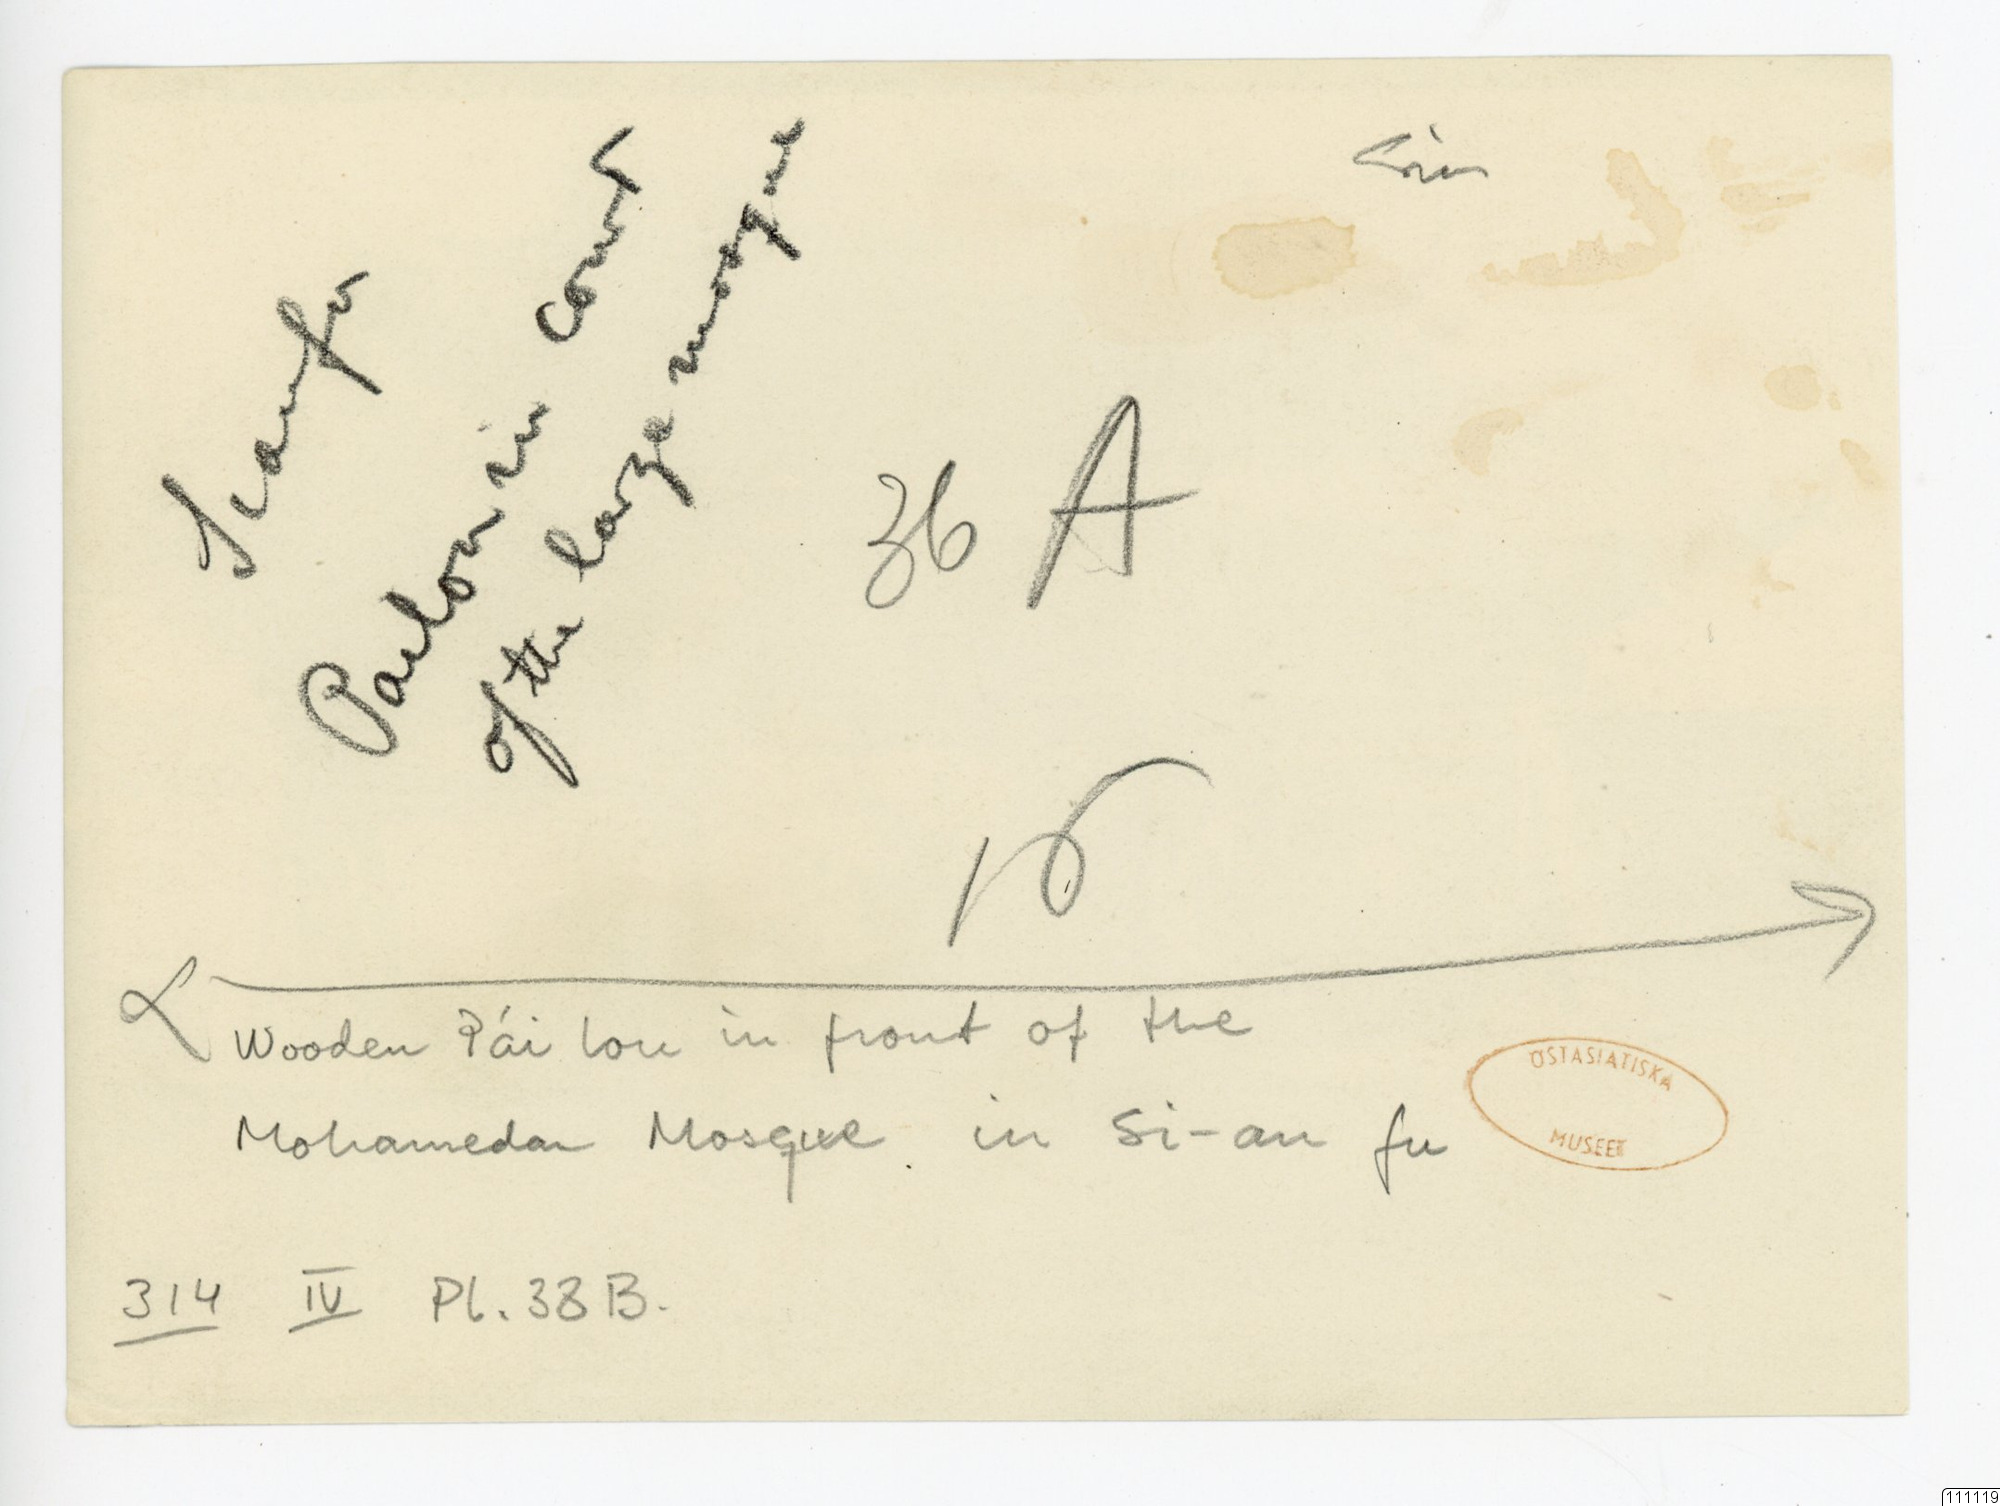 Sianfu
Pailou in court
of the large mosque
36 A
Wooden P'ái lou in front of the
Mohamedan Mosque in Si-an fu
ÖSTASIATISKA
MUSEET
314 IV Pl. 38 B.
111119